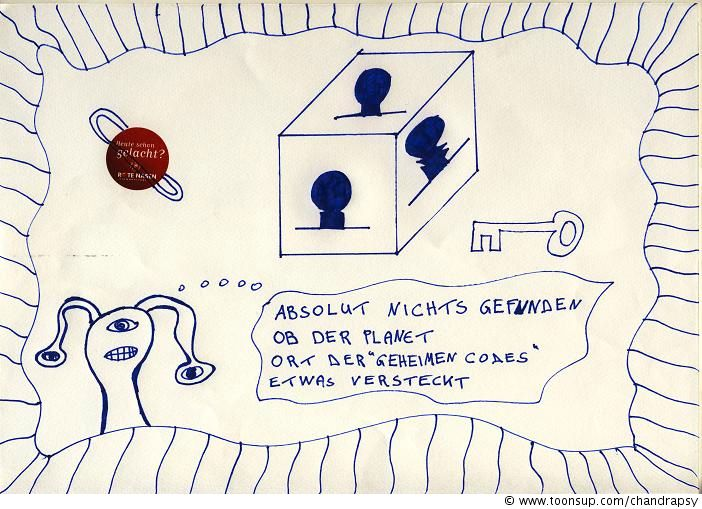 Heute schon
gelacht?
ROTE NASEN
ABSOLUT NICHTS GEFUNDEN
OB DER PLANET
ORT DER "GEHEIMEN CODES"
ETWAS VERSTECKT
© www.toonsup.com/chandrapsy